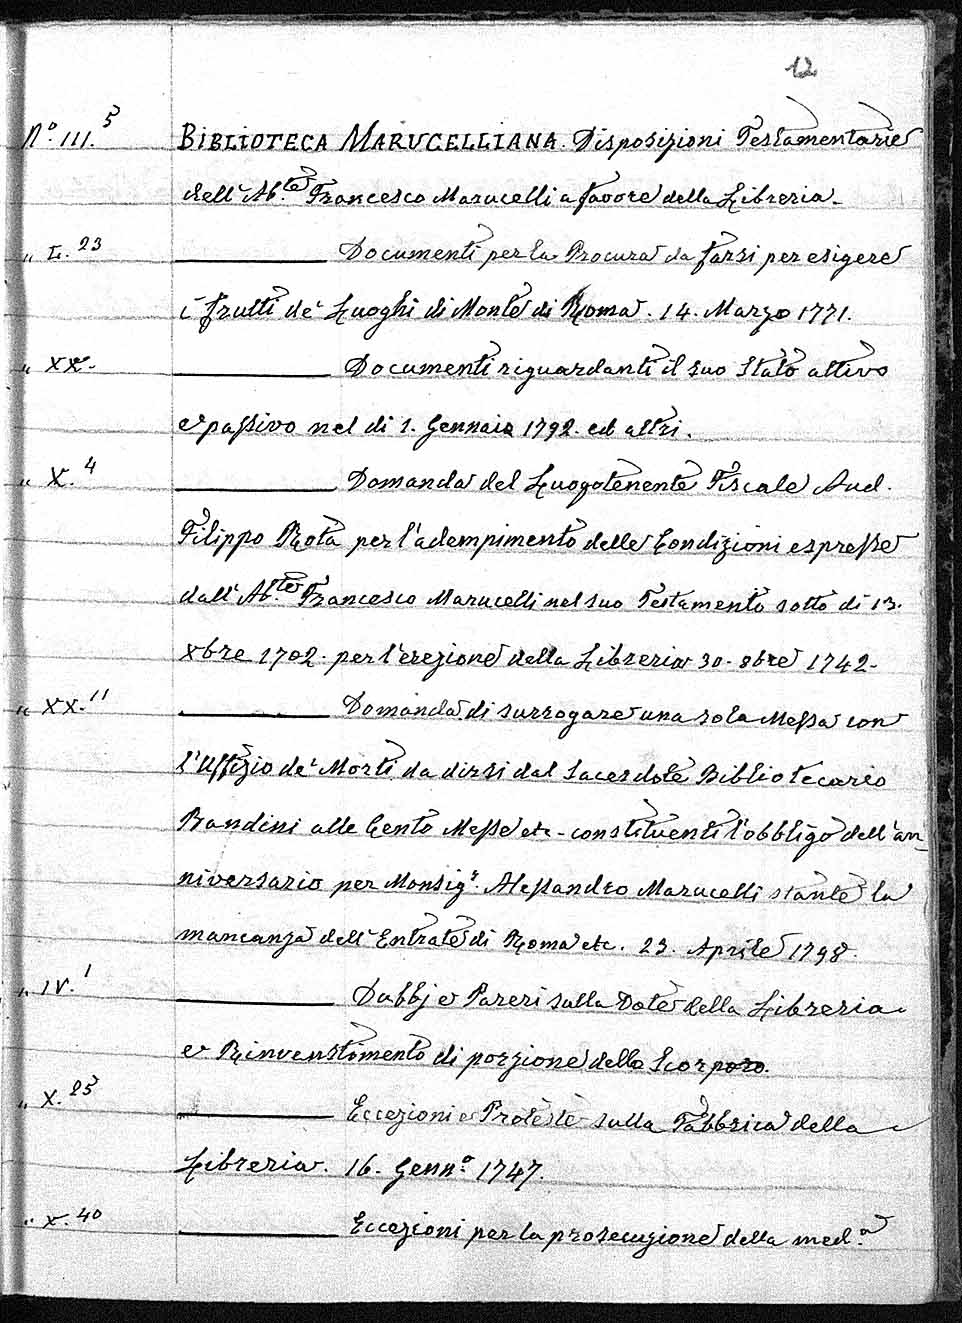 12
N.º III.5 BIBLIOTECA MARUCELLIANA. Disposizioni Testamentarie
dell' Ab.te Francesco Marucelli a favore della Libreria.
„ L.23 ———— Documenti per la Procura da farsi per esigere
i frutti de' Luoghi di Monte di Roma. 14. Marzo 1771.
„ XX. ———— Documenti riguardanti il suo Stato attivo
e passivo nel di 1. Gennaio 1792. ed altri.
„ X.4 ———— Domanda del Luogotenente Fiscale Aud.
Filippo Rota per l'adempimento delle Condizioni espresse
dall' Ab.te Francesco Marucelli nel suo Testamento sotto di 13.
Xbre 1702. per l'erezione della Libreria 30. 8bre 1742.
„ XX.11 ———— Domanda di surrogare una sola Messa con
l'Uffizio de' Morti da dirsi dal Sacerdote Bibliotecario
Bandini alle Cento Messe etc. constituenti l'obbligo dell'an-
niversario per Monsig.r Alessandro Marucelli stante la
mancanza dell' Entrate di Roma etc. 23. Aprile 1798.
„ IV.1 ———— Dubbj e Pareri sulla Dote della Libreria
e Rinvenstimento di porzione dello Scorporo.
„ X.25 ———— Eccezioni e Proteste sulla Fabbrica della
Libreria. 16. Genn.o 1747.
„ X.40 ———— Eccezioni per la prosecuzione della med.a